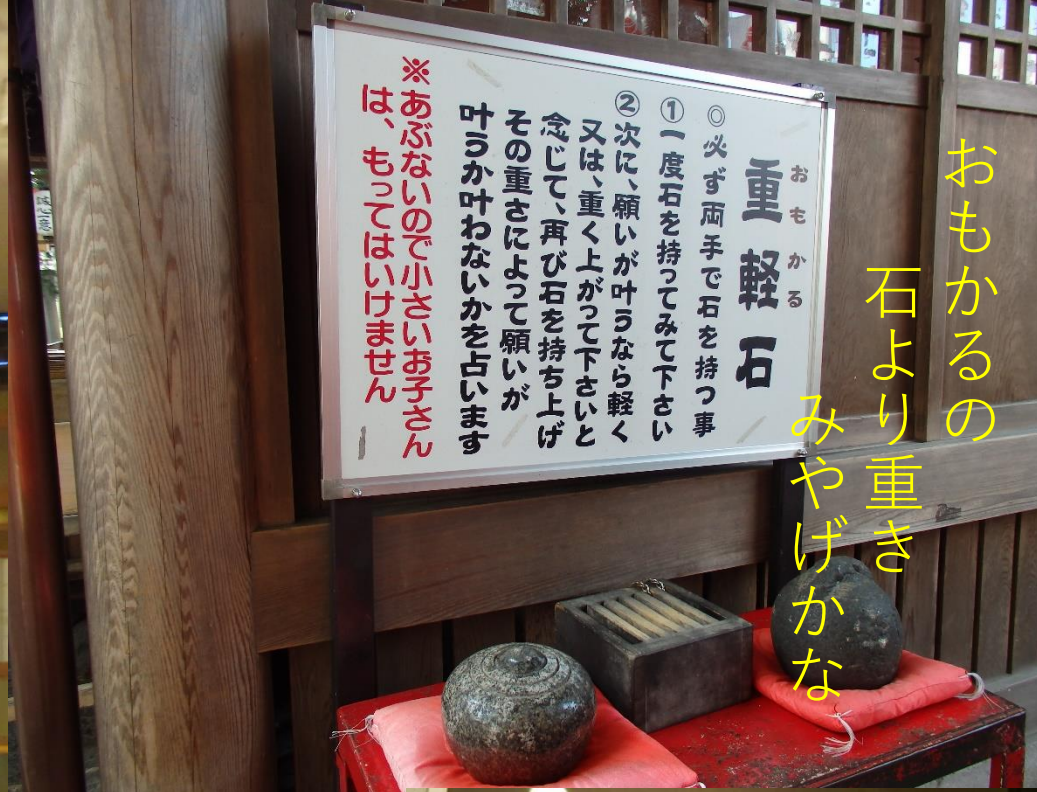 おもかるの
石より重き
みやげかな
おもかる
重軽石
◎必ず両手で石を持つ事
①一度石を持ってみて下さい
②次に、願いが叶うなら軽く
又は、重く上がって下さいと
念じて、再び石を持ち上げ
その重さによって願いが
叶うか叶わないかを占います
※あぶないので小さいお子さん
は、もってはいけません